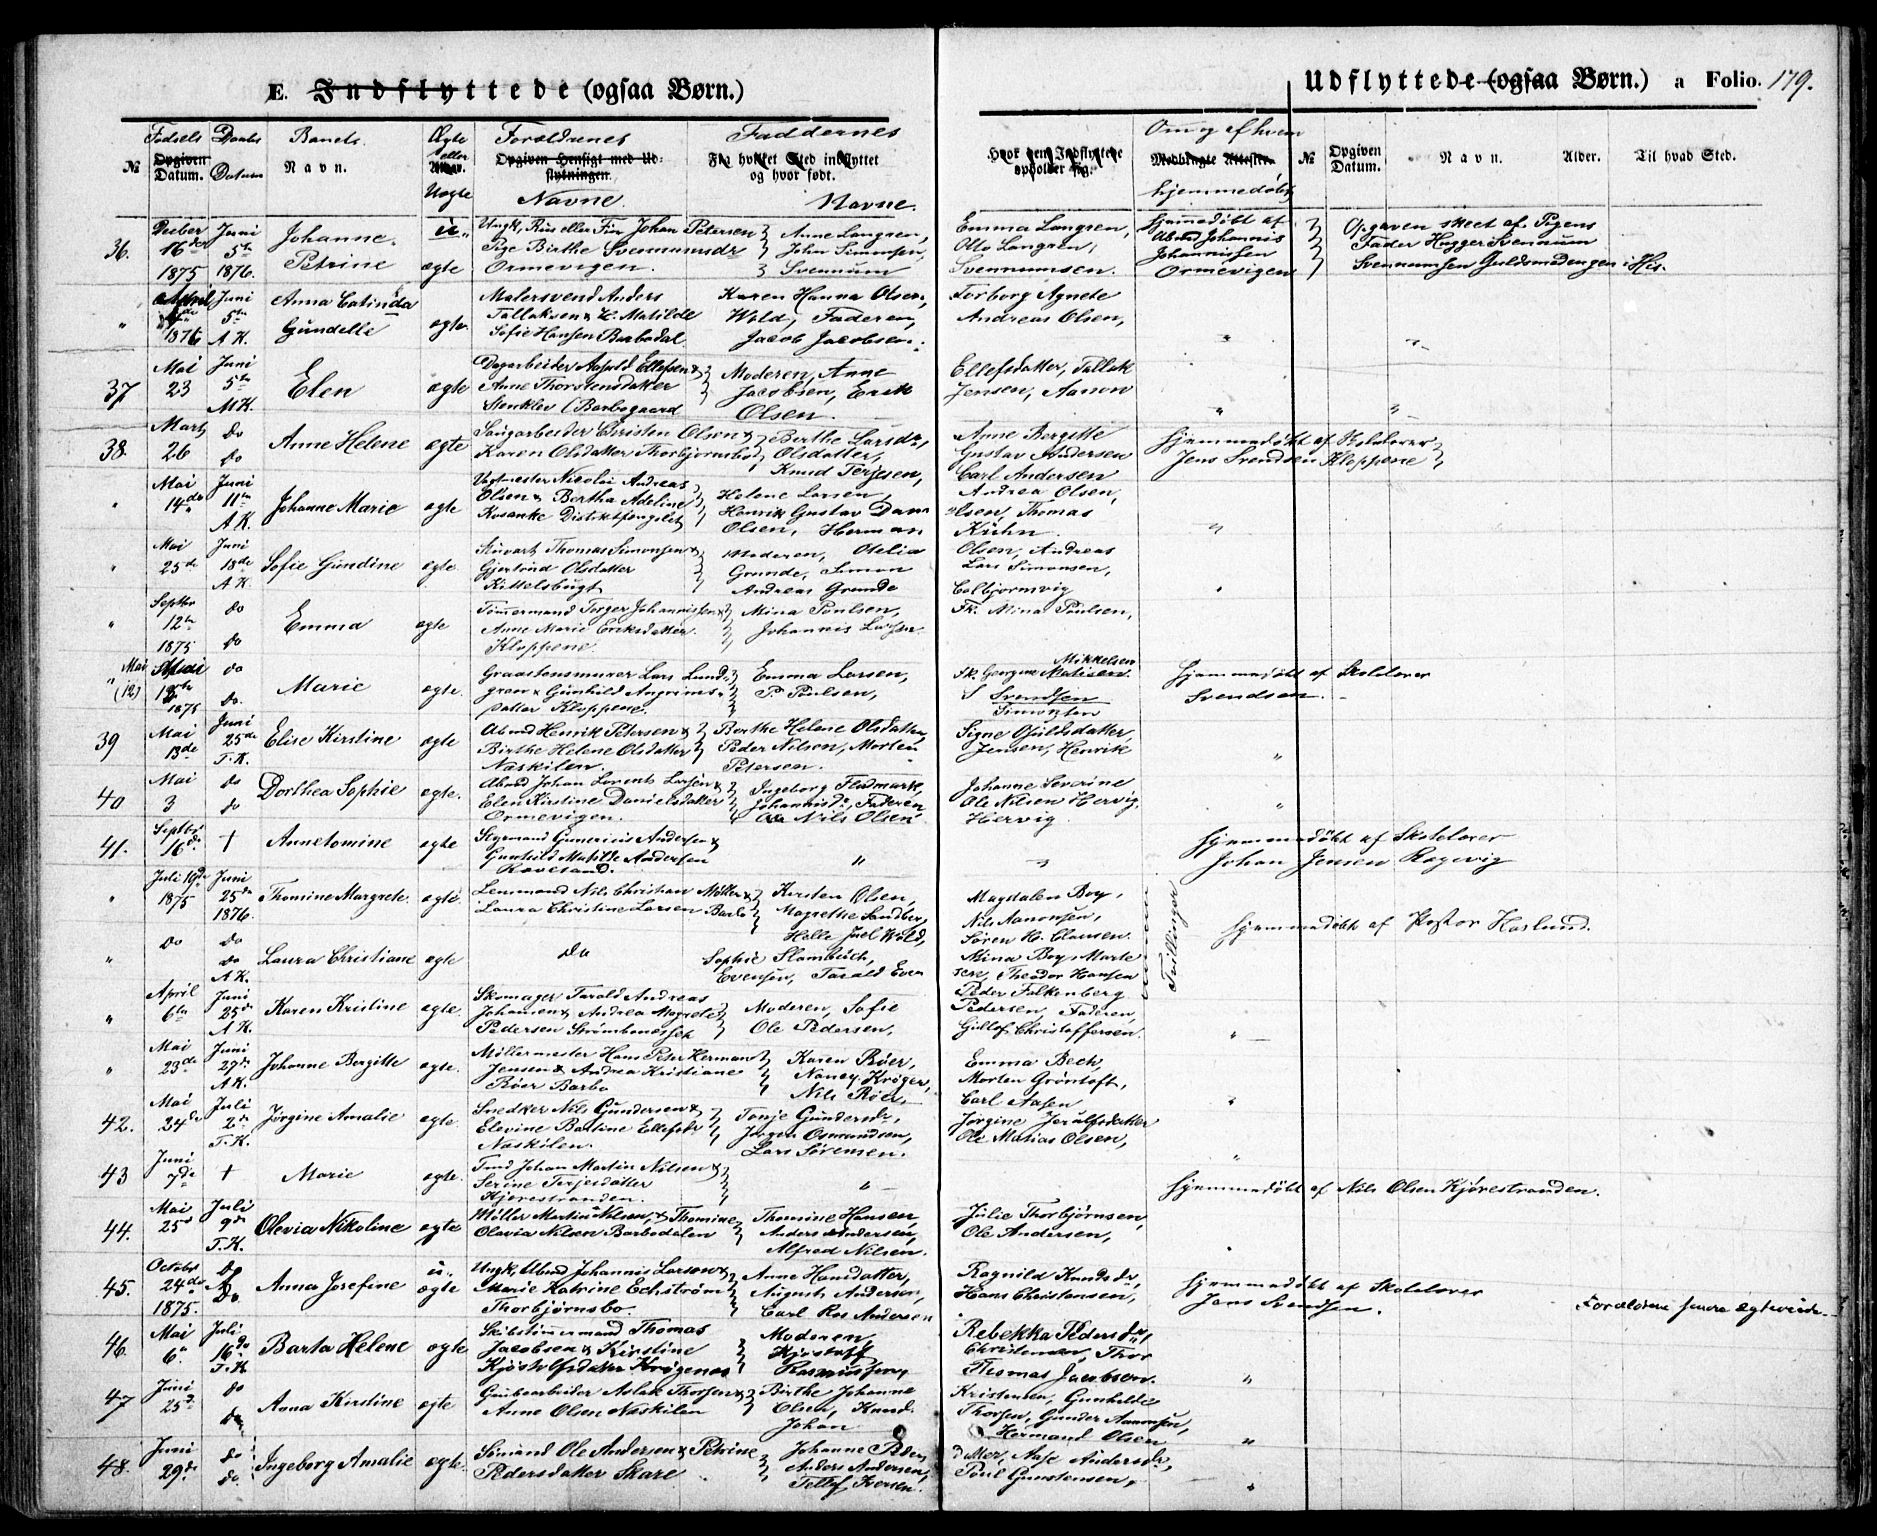 E. Indflyttede (ogsaa Børn.)
Udflyttede (ogsaa Børn.) a Folio. 179.
Fødsels Daabs Barnets Ægte Forældrenes Faddernes Om og af hvem
No Opgiven Datum. Datum Navn. eller Opgiven Hensigt med Udflytningen. Fra hvilket Sted indflyttet og hvor født. Hvor den Indflyttede opholder sig. Medbragte Attester. No Opgiven Datum. Navn. Alder. Til hvad Sted.
Uægte Navne Navne. hjemmedøbt
Decber Juni Johanne u. Johan Petersen Anne Langren, Emma Langren, hjemmedøbt af Opgaven skeet af Pigens
36. 16de 5te Pige Birthe Svennumsdr John Simonsen, Otto Langren, Johannis Fader
1875 1876. Petrine ægte Ormevigen. Svennum Svennumsen. Johannissen Ormevigen Svennumsen
April Juni Anna Catinda Malersvend Anders Karen Hanna Olsen, Torborg Agnete
" 5te ægte Tallaksen & H. Matilde Wold, Faderen, Andreas Olsen,
1876 A.K. Gundelle Sofie Hansen Barbodal Jacob Jacobsen.
Mai Juni Dagarbeider Ellefsen & Moderen, Anne Ellefsdatter, Tallak
37 23 5te Elen ægte Anne Thorstensdatter Jacobsen, Erik Jensen, Aanon
M.K. Stenklev (Barbogaard Olsen.
Marts do Saugarbeider Christen Olsen & Birthe Larsdr, Anne Bergitte hjemmedøbt af Skolelærer
38. 26 do Anne Helene ægte Karen Olsdatter Thorbjørnsbo Olsdatter, Gustav Andersen Jens Svendsen Kloppene
Knud Terjesen, Carl Andersen
Mai Juni Vagtmester Nicolai Andreas Helene Larsen, Andrea Olsen,
" 14de 11te Johanne Marie ægte Olsen & Bertha Adeline Henrik Gustav Dam Olsen, Thomas
A.K. Distriktsfængslet Olsen, Herman Kühn.
Mai Juni Stuvart Thomas Simonsen & Moderen, Otelia Olsen, Andreas
" 25de 18de Sofie Gundine ægte Gjertrud Olsdatter Grunde, Simon Lars Simonsen,
A.K. Kittelsbugt Andreas Grunde Colbjornsvig
Septbr do Tømmermand Torger Johannissen & Mina Poulsen, Fr. Mina Paulsen,
" 12te Emma ægte Anne Marie Eriksdatter Johannis Larsen
1875 do Kloppene.
Mai do Graastensmurer Lars Lund Emma Larsen, Mikkelsen hjemmedøbt af Skolelærer
" (12) Marie ægte. gren & Gunhild P. Poulsen, Fr. Georgine Svendsen.
1875 do. datter Kloppene. S Svendsen Simonsen
Mai Juni Henrik Petersen & Berthe Helene Olsdatter, Signe
39 13de 25de Elise Kirstine ægte Birthe Helene Olsdatter Peder Nilsen, Morten Jensen, Henrik
T.K. Naskilen. Petersen.
Mai do Johan Lorents Larsen & Ingeborg Flødmark, Johanne Severine
40 3 do Dorthea Sophie ægte. Elen Kirstine Danielsdatter Johannisdr, Faderen Ole Nilsen Hervig,
Ormevigen. Nils Olsen Hervig.
Septbr Styrmand Gunerius Andersen & hjemmedøbt af Skolelærer
41. 16de † Annetomine ægte Gunhild Matilde Andersen " " Johan Jensen Ragevig
Ravesand.
Juli 19de Juni Nils Christian Møller & Kirsten Olsen, Magdalen Boy,
" 1875 25de Thomine Margrete. ægte. Laura Christine Larsen Barbo Magrethe Sandber, Nils Aanonsen,
1876. Helle Juel Wold, Søren H. Clausen. Tvillinger hjemmedøbt af Pastor Haslund.
do do
" do Laura Christiane ægte do Sophie Slambuch, Mina Boy, Marte
A.K. Evensen, Tarald Even sen, Theodor Hansen
April Juni Skomager Tarald Andreas Peder Falkenberg
" 6te 25de Karen Kristine ægte. Johansen & Andrea Magrete Moderen, Sofie Pedersen, Faderen,
A.K. Pedersen Strømbonesset Ole Pedersen, Christoffersen.
Mai Juni Møllermester Hans Peter Herman Karen Røer, Emma Bech,
" 23de 27de Johanne Bergitte ægte. Jensen & Andrea Kristiane Nancy Krøger, Morten Grøntoft,
A.K. Røer Barbo Nils Røer, Carl Aasen
Mai Juli Snedker Nils Gundersen & Tonje Gundersdr, Jørgine Jeralfsdatter
42. 24de 2de Jørgine Amalie ægte. Elevine Bertine Ellefsdr Jørgen Osmundsen, Ole Matias Olsen,
T.K. Naskilen. Lars Sørensen.
Juni Johan Martin Nilsen &
43 7de † Marie ægte. Serine Terjesdatter " hjemmedøbt af Nils Olsen Kjørestranden.
Kjørestranden.
Mai Juli Møller Martin Nilsen, & Thomine Thomine Hansen, Julie Thorbjørnsen,
44. 25de 9de Olevia Nikoline ægte Olavia Nilsen Barbodalen Anders Andersen, Ole Andersen,
T.K. Alfred Nilsen.
Octobr do u. Ungk. Johannis Larsen & Anne Hansdatter, Ragnild Knudsdr, hjemmedøbt af Skolelærer
45. 24de do Anna Josefine ægte Marie Katrine Echstrøm August Andersen, Hans Christensen, Jens Svendsen. Forældrene senere ægteviede
1875. Thorbjørnsbo. Carl Ros Andersen
Mai Juli Skibstømmermand Thomas Moderen, Rebekka Pedersdr,
46. 6. 16de Barta Helene ægte Jacobsen & Kirstine Kjøstolf Christensen, Thor
T.K. Kjøstolfsdatter Krøgenes Rasmussen, Thomas Jacobsen.
Juni do Grubearbeider Aslak Thorsen & Birthe Johanne Kristensen, Gunhilde
47 25de do Anna Kirstine ægte Anne Olsen Naskilen Olsen, Knud Thorsen, Gunder Aanonsen,
Johan Hermand Olsen
Juni do Sømand Ole Andersen & Petrine Johanne Peders datter, Aase Andersdr,
48. 29de do. Ingeborg Amalie ægte Pedersdatter Skare Anders Andersen, Poul Gunstensen,
Tellef Iversen.